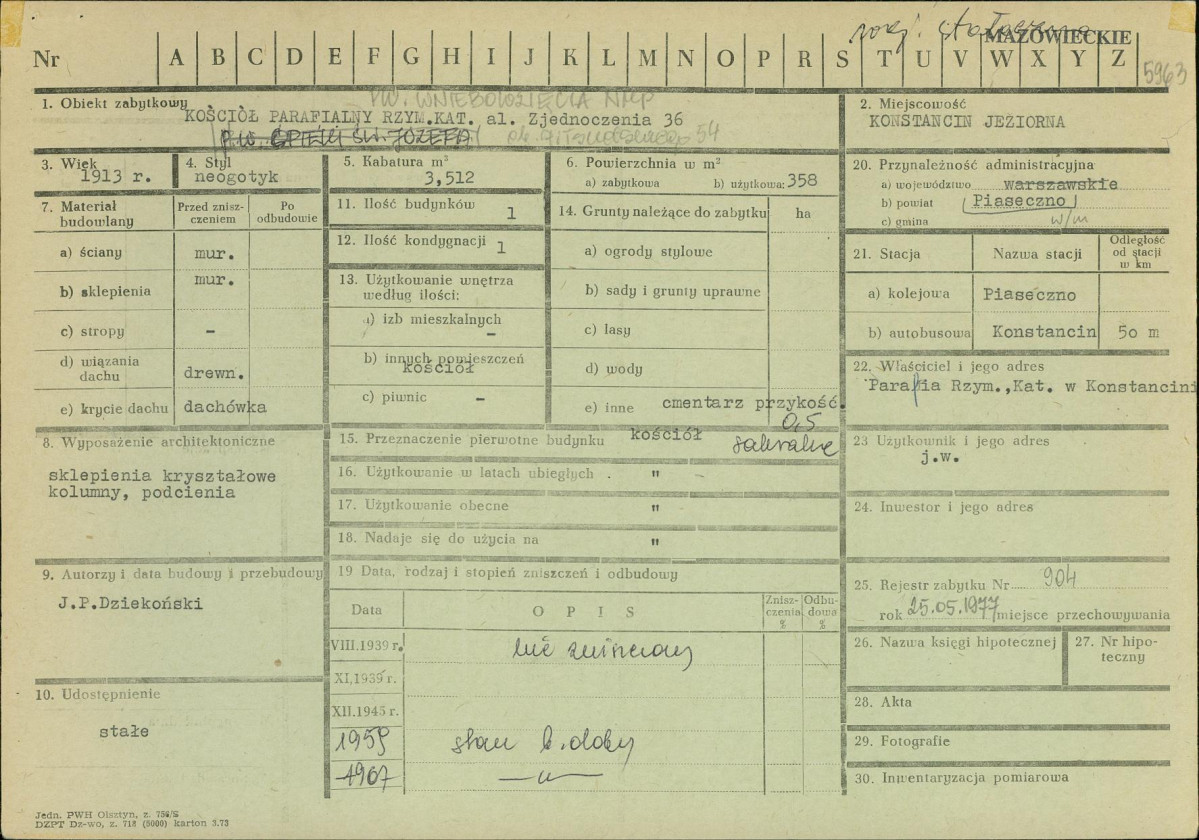 MAZOWIECKIE
Nr A B C D E F G H I J K L M N O P R S T U V W X Y Z
5963
1. Obiekt zabytkowy
PW. WNIEBOWZIĘCIA NMP
KOŚCIÓŁ PARAFIALNY RZYM.KAT. al. Zjednoczenia 36
p.w. OPIEKI ŚW. JÓZEFA
ok. Piłsudskiego 54
2. Miejscowość
KONSTANCIN JEZIORNA
3. Wiek
1913 r.
4. Styl
neogotyk
5. Kabatura m³
3,512
6. Powierzchnia w m²
a) zabytkowa b) użytkowa: 358
20. Przynależność administracyjna
a) województwo warszawskie
b) powiat Piaseczno
c) gmina w/m
7. Materiał budowlany
Przed znisz-
czeniem
Po
odbudowie
a) ściany mur.
b) sklepienia mur.
c) stropy -
d) wiązania
dachu drewn.
e) krycie dachu dachówka
11. Ilość budynków 1
12. Ilość kondygnacji 1
13. Użytkowanie wnętrza
według ilości:
a) izb mieszkalnych -
b) innych pomieszczeń
kościół
c) piwnic -
14. Grunty należące do zabytku ha
a) ogrody stylowe
b) sady i grunty uprawne
c) lasy
d) wody
e) inne cmentarz przykość.
0,5
21. Stacja Nazwa stacji
Odległość
od stacji
w km
a) kolejowa Piaseczno
b) autobusowa Konstancin 50 m
22. Właściciel i jego adres
Parafia Rzym.,Kat. w Konstancini
8. Wyposażenie architektoniczne
sklepienia kryształowe
kolumny, podcienia
15. Przeznaczenie pierwotne budynku kościół sakralne
16. Użytkowanie w latach ubiegłych . "
17. Użytkowanie obecne "
18. Nadaje się do użycia na "
23 Użytkownik i jego adres
j.w.
24. Inwestor i jego adres
9. Autorzy i data budowy i przebudowy
J.P.Dziekoński
10. Udostępnienie
stałe
19 Data, rodzaj i stopień zniszczeń i odbudowy
Data
O P I S
Znisz-
czenia
%
Odbu-
dowa
%
VIII.1939 r.
XI.1939 r.
XII.1945 r.
1959 stan b. dobry
1967 —"—
25. Rejestr zabytku Nr 904
rok 25.05.1977 miejsce przechowywania
26. Nazwa księgi hipotecznej
27. Nr hipo-
teczny
28. Akta
29. Fotografie
30. Inwentaryzacja pomiarowa
Jedn. PWH Olsztyn, z. 756/S
DZPT Dz-wo, z. 718 (5000) karton 3.73